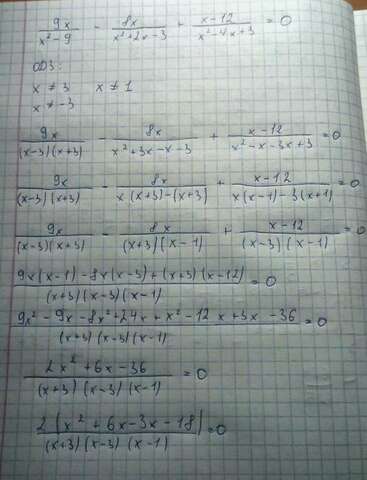 9x/(x²-9) - 8x/(x²+2x-3) + (x-12)/(x²-4x+3) = 0
ОДЗ:
x ≠ 3 x ≠ 1
x ≠ -3
9x/((x-3)(x+3)) - 8x/(x²+3x-x-3) + (x-12)/(x²-x-3x+3) = 0
9x/((x-3)(x+3)) - 8x/(x(x+3)-(x+3)) + (x-12)/(x(x-1)-3(x+1)) = 0
9x/((x-3)(x+3)) - 8x/((x+3)(x-1)) + (x-12)/((x-3)(x-1)) = 0
(9x(x-1)-8x(x-3)+(x+3)(x-12))/((x+3)(x-3)(x-1)) = 0
(9x²-9x-8x²+24x+x²-12x+3x-36)/((x+3)(x-3)(x-1)) = 0
(2x²+6x-36)/((x+3)(x-3)(x-1)) = 0
2(x²+6x-3x-18)/((x+3)(x-3)(x-1)) = 0